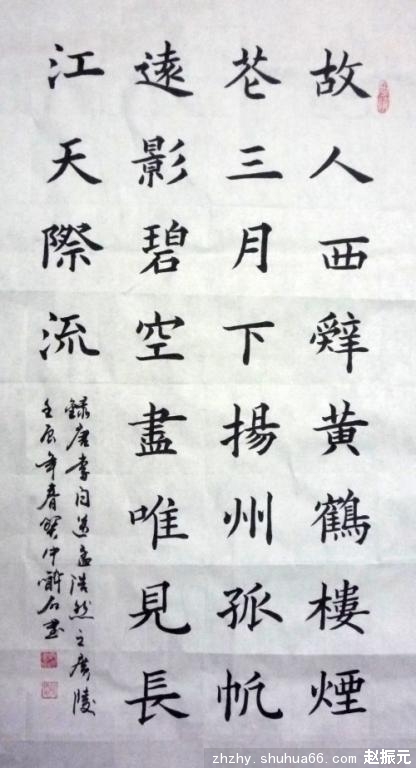 故人西辤黄鶴樓煙
花三月下揚州孤帆
遠影碧空盡唯見長
江天際流
錄唐李白送孟浩然之廣陵
壬辰年春
zhzhy.shuhua66.com 赵振元